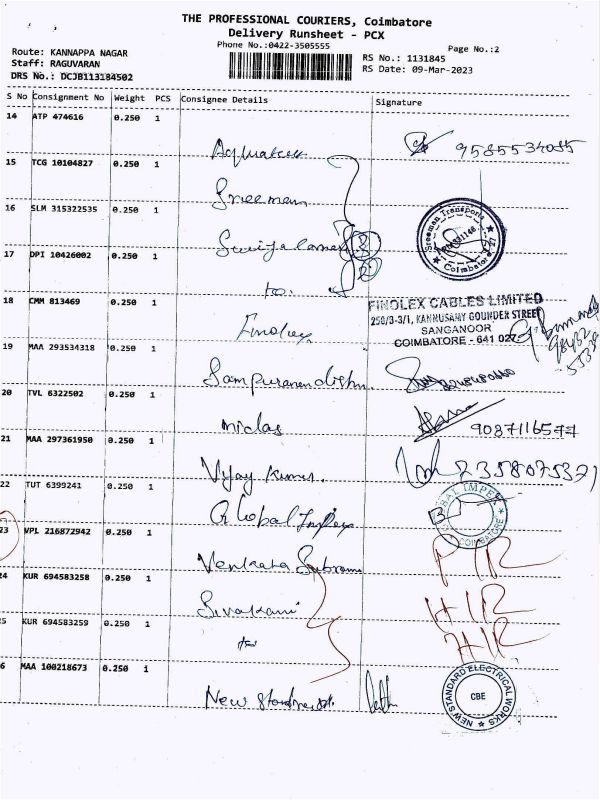 THE PROFESSIONAL COURIERS, Coimbatore
Delivery Runsheet - PCX
Phone No.:0422-3505555
Page No.:2
Route: KANNAPPA NAGAR
Staff: RAGUVARAN
DRS No.: DCJB113184502
RS No.: 1131845
RS Date: 09-Mar-2023
S No Consignment No Weight PCS Consignee Details Signature
14 ATP 474616 0.250 1
9585534085
15 TCG 10104827 0.250 1
Sreeman
16 SLM 315322535 0.250 1
Sreeman Transports
Coimbatore - 27
17 DPI 10426002 0.250 1
to.
18 CMM 813469 0.250 1
Finolex
FINOLEX CABLES LIMITED
250/3-3/1, KANNUSAMY GOUNDER STREET
SANGANOOR
COIMBATORE - 641 027
19 MAA 293534318 0.250 1
20 TVL 6322502 0.250 1
midas
9087116577
21 MAA 297361950 0.250 1
Vijay Kumar.
22 TUT 6399241 0.250 1
Global Impex
COIMBATORE
23 VPL 216872942 0.250 1
Venkata Subram
24 KUR 694583258 0.250 1
Sivakami
25 KUR 694583259 0.250 1
6 MAA 100218673 0.250 1
New
NEW STANDARD ELECTRICAL WORKS
CBE